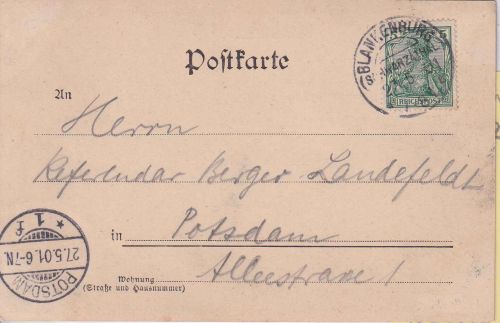 Postkarte
BLANKENBURG
An
Herrn
Referendar Berger-Landefeldt
in Potsdam
Alleestrasse 1
Wohnung
(Straße und Hausnummer)
* 1 f
27.5.01.6-7N.
POTSDAM